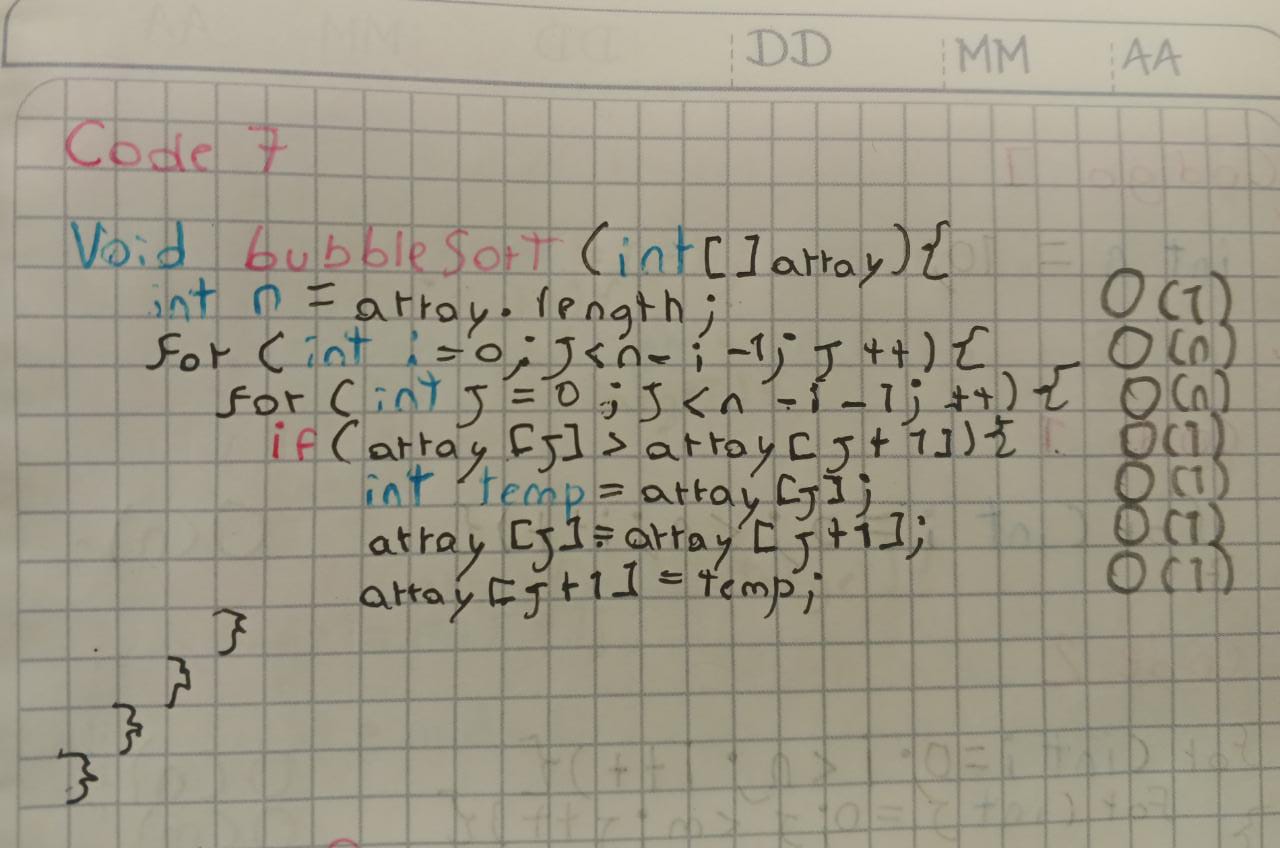 DD MM AA
Code 7
Void bubbleSort (int[]array){
int n = array.length; O(1)
for (int i=0; j<n-i-1; j++){ O(n)
for (int j=0; j<n-i-1; ++){ O(n)
if(array[j]>array[j+1]){ O(1)
int temp=array[j]; O(1)
array[j]=array[j+1]; O(1)
array[j+1]=temp; O(1)
}
}
}
}